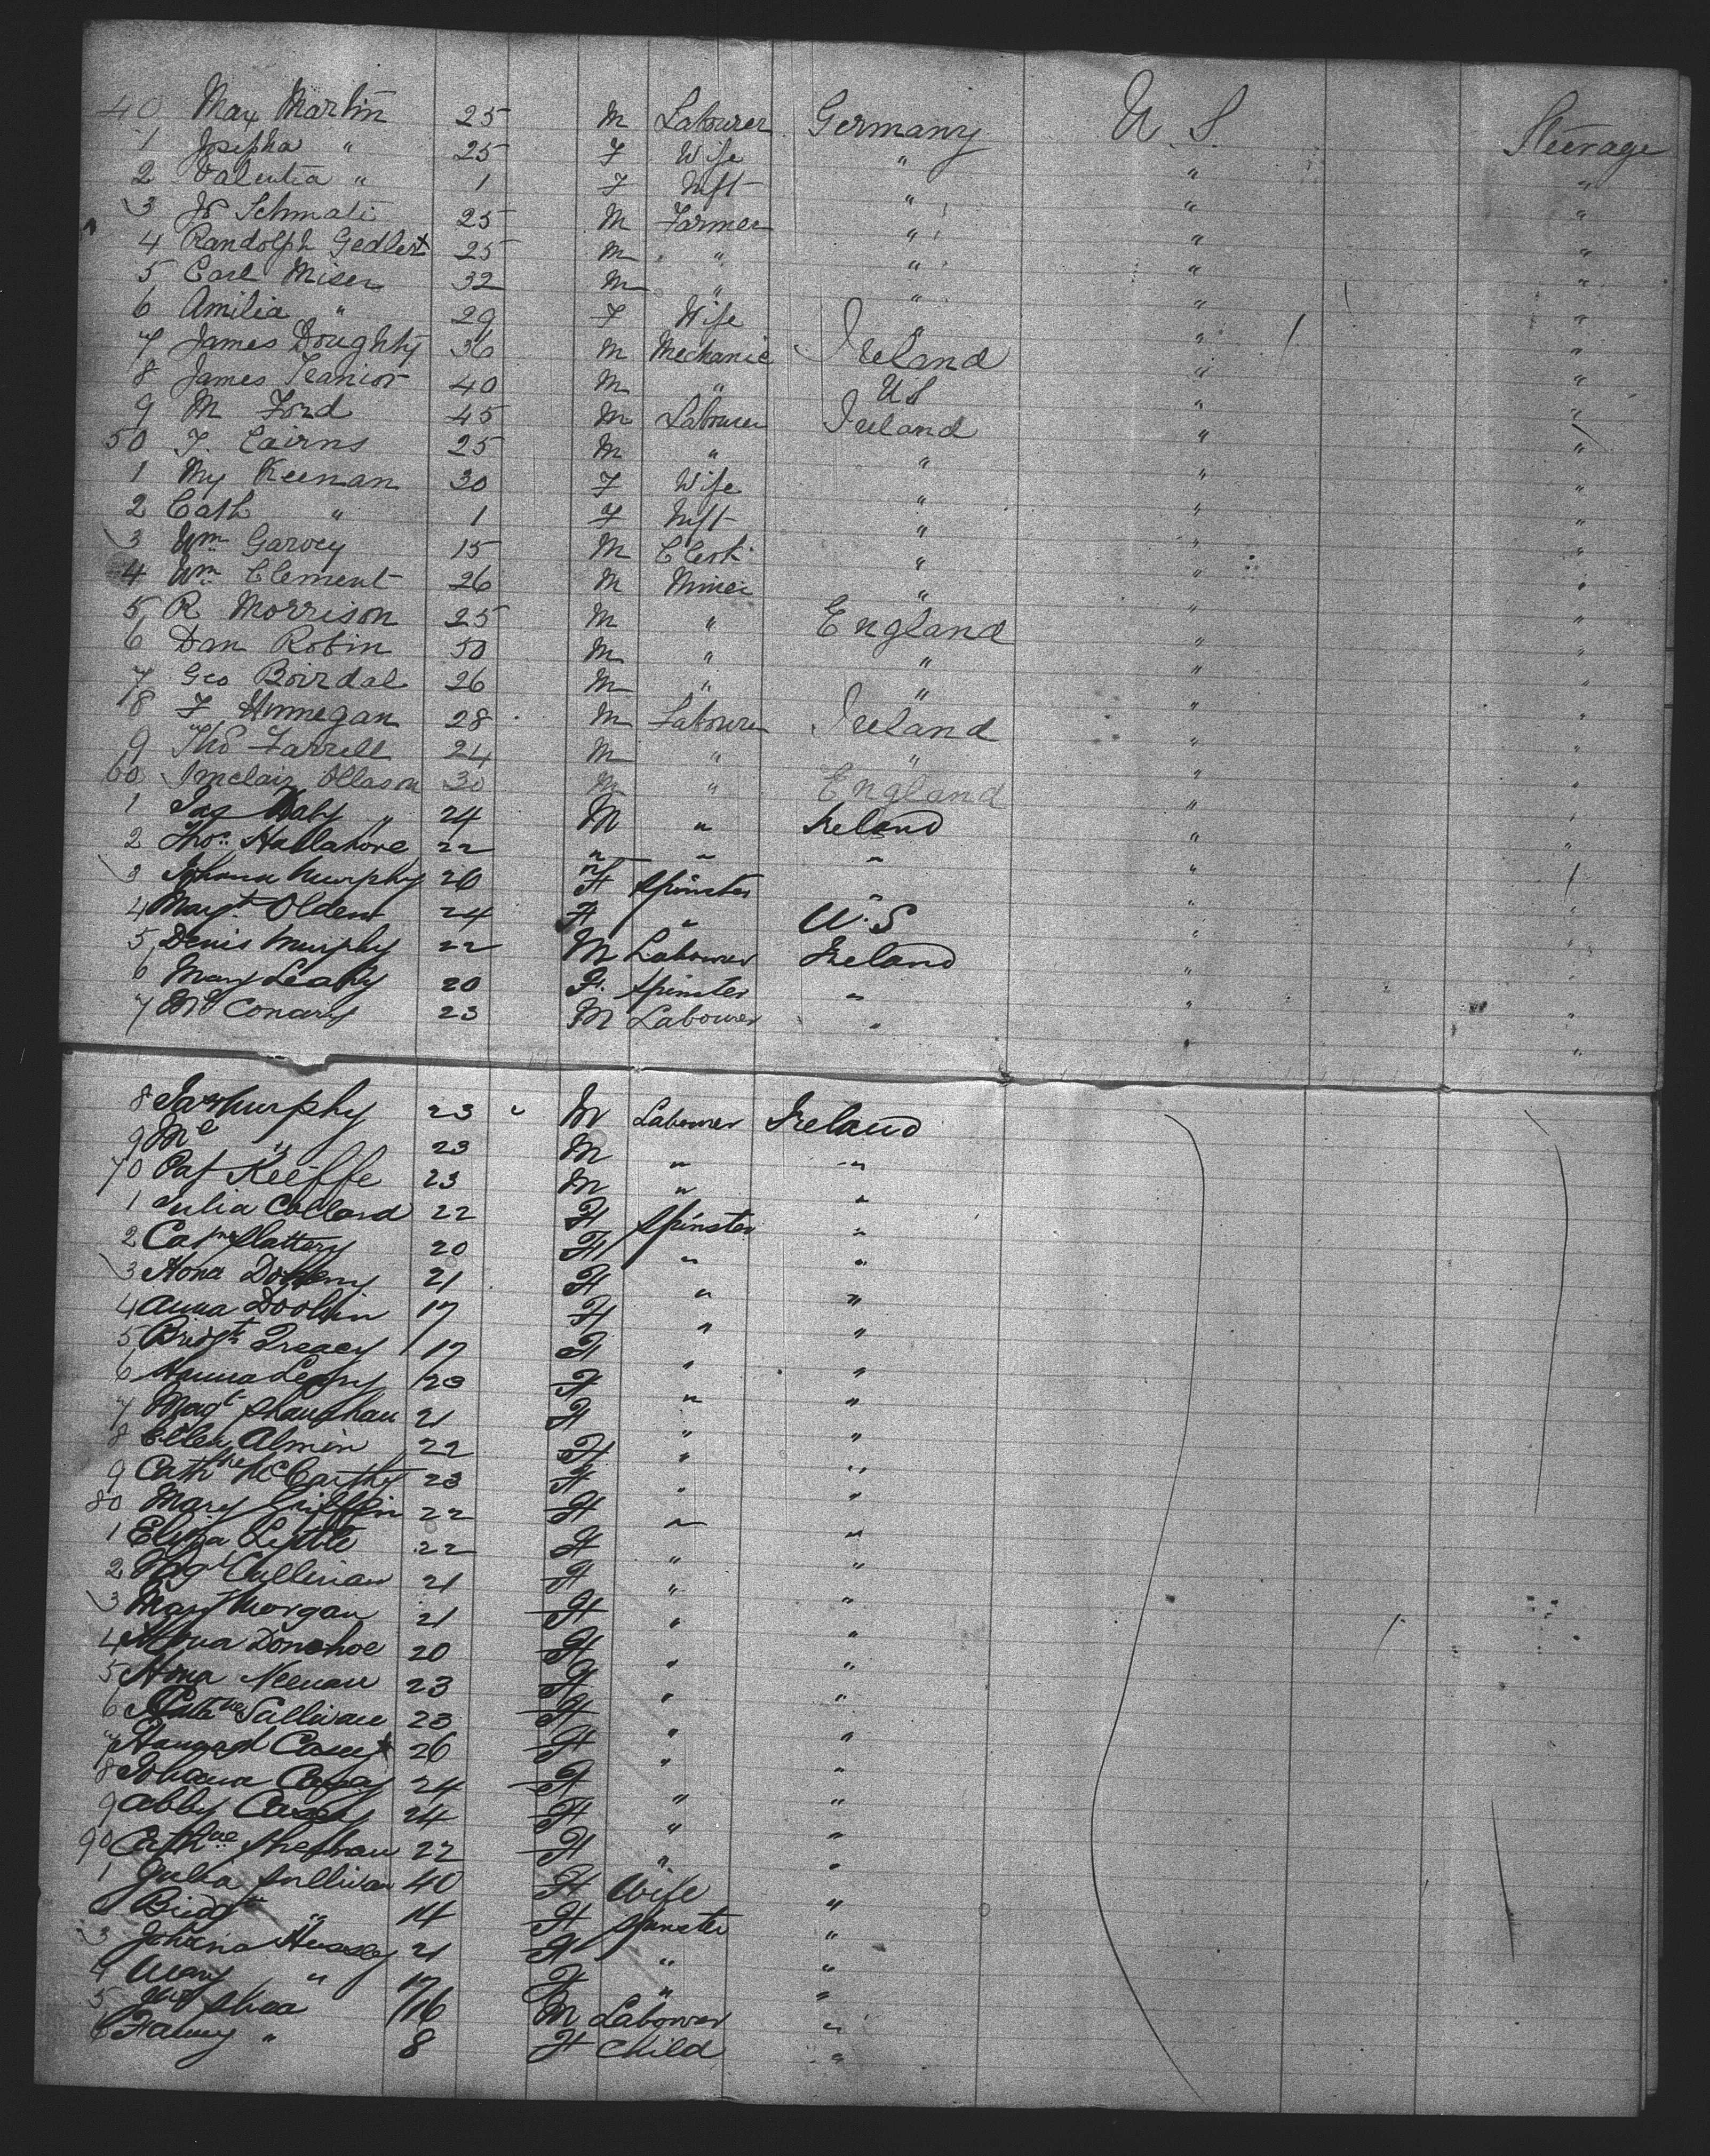 40 Max Martin 25 M Labourer Germany U S. Steerage
1 Josepha " 25 F Wife " " "
2 Valentia " 1 F Inft " " "
3 Js Schmati 25 M Farmer " " "
4 Randolph Gedlert 25 M " " " "
5 Carl Miser 32 M " " " "
6 Amilia " 29 F Wife " " "
7 James Doughty 36 M Mechanic Ireland " "
8 James 40 M " US " "
9 M Ford 45 M Labourer Ireland " "
50 F. Cairns 25 M " " " "
1 My Keenan 30 F Wife " " "
2 Cath " 1 F Inft " " "
3 Wm Garvey 15 M Clerk " " "
4 Wm Clement 26 M Miner " " "
5 R Morrison 25 M " England " "
6 Dan Robin 50 M " " " "
7 Geo Boirdal 26 M " " " "
8 F Hinnegan 28 M Labourer Ireland " "
9 Thos Farrell 24 M " " " "
60 Sinclair Ollason 30 M " England " "
1 Jas Daly " 24 M " Ireland " "
2 Thos Hallahore 22 " " " " "
3 Johana Murphy 26 F Spinster " " "
4 Margt Olden 24 F " U.S " "
5 Denis Murphy 22 M Labourer Ireland " "
6 Mary Leahy 20 F. Spinster " " "
7 Ml Conary 23 M Labourer " " "
8 Jas Murphy 23 M Labourer Ireland
9 Ml " 23 M " "
70 Pat Keeffe 23 M " "
1 Julia Collard 22 F Spinster "
2 Cathne Slattery 20 F " "
3 Hona 21 F " "
4 Anna Doolin 17 F " "
5 Bridgt Treacy 17 F " "
6 Hanna 23 F " "
7 Magt Shanahan 21 F " "
8 Ellen Almin 22 F " "
9 Cathne McCarthy 23 F " "
80 Mary Griffin 22 F " "
1 Eliza Lyttle 22 F " "
2 Mgt Cullinan 21 F " "
3 Mary Morgan 21 F " "
4 Donohoe 20 F " "
5 Hona Neenan 23 F " "
6 Cathne Sullivan 23 F " "
7 Casey 26 F " "
8 Johana Casey 24 F " "
9 Abby Casey 24 F " "
90 Cathne Sheehan 22 F " "
1 Julia Sullivan 40 F Wife "
2 Bridgt " 14 F Spinster "
3 Johana Hussey 21 F " "
4 Mary " 17 F " "
5 Shea 16 M Labourer "
6 Fanny " 8 F Child "